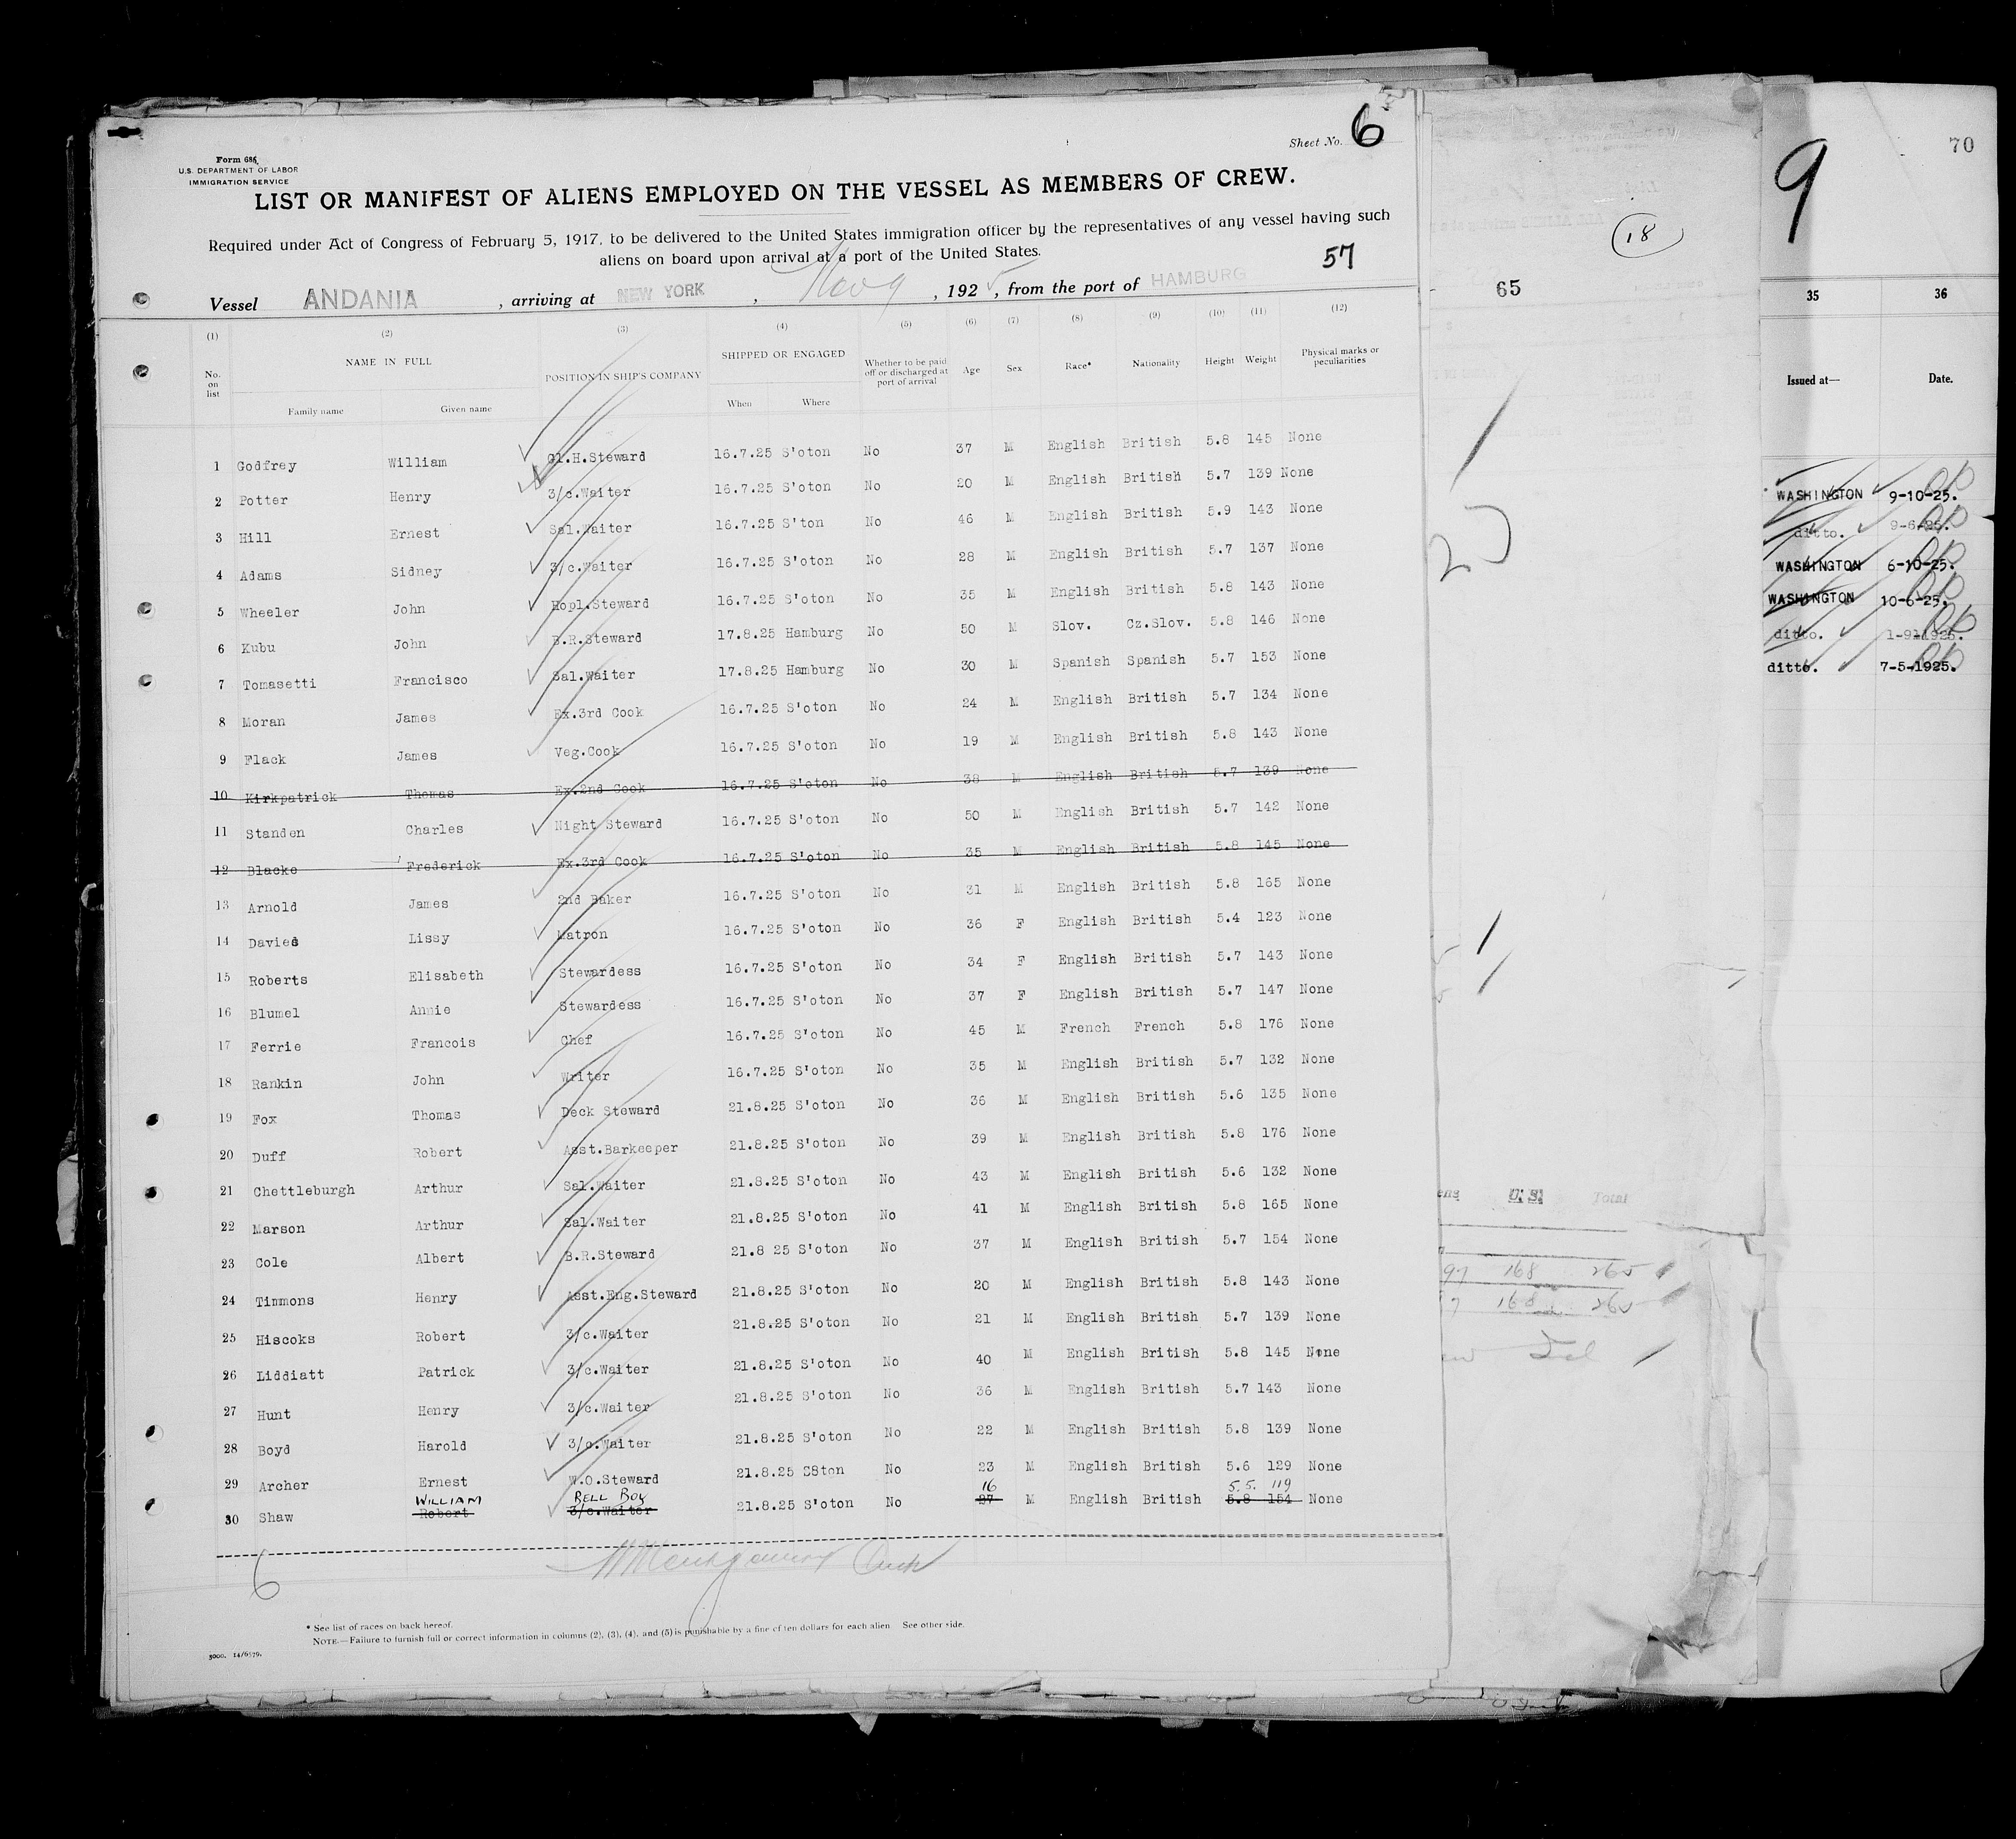 Sheet No. 6
Form 686
U.S. DEPARTMENT OF LABOR
IMMIGRATION SERVICE
LIST OR MANIFEST OF ALIENS EMPLOYED ON THE VESSEL AS MEMBERS OF CREW.
Required under Act of Congress of February 5, 1917, to be delivered to the United States immigration officer by the representatives of any vessel having such
aliens on board upon arrival at a port of the United States.
57
Vessel ANDANIA, arriving at NEW YORK, Nov 9, 1925, from the port of HAMBURG
(1) (2) (3) (4) (5) (6) (7) (8) (9) (10) (11) (12)
No. on list NAME IN FULL POSITION IN SHIP'S COMPANY SHIPPED OR ENGAGED Whether to be paid off or discharged at port of arrival Age Sex Race* Nationality Height Weight Physical marks or peculiarities
Family name Given name When Where
1 Godfrey William Gl.H.Steward 16.7.25 S'oton No 37 M English British 5.8 145 None
2 Potter Henry 3/c.Waiter 16.7.25 S'oton No 20 M English British 5.7 139 None
3 Hill Ernest Sal.Waiter 16.7.25 S'ton No 46 M English British 5.9 143 None
4 Adams Sidney 3/c.Waiter 16.7.25 S'oton No 28 M English British 5.7 137 None
5 Wheeler John Hopl.Steward 16.7.25 S'oton No 35 M English British 5.8 143 None
6 Kubu John B.R.Steward 17.8.25 Hamburg No 50 M Slov. Cz.Slov. 5.8 146 None
7 Tomasetti Francisco Sal.Waiter 17.8.25 Hamburg No 30 M Spanish Spanish 5.7 153 None
8 Moran James Ex.3rd Cook 16.7.25 S'oton No 24 M English British 5.7 134 None
9 Flack James Veg.Cook 16.7.25 S'oton No 19 M English British 5.8 143 None
10 Kirkpatrick Thomas Ex.2nd Cook 16.7.25 S'oton No 38 M English British 5.7 139 None
11 Standen Charles Night Steward 16.7.25 S'oton No 50 M English British 5.7 142 None
12 Blacke Frederick Ex.3rd Cook 16.7.25 S'oton No 35 M English British 5.8 145 None
13 Arnold James 2nd Baker 16.7.25 S'oton No 31 M English British 5.8 165 None
14 Davies Lissy Matron 16.7.25 S'oton No 36 F English British 5.4 123 None
15 Roberts Elisabeth Stewardess 16.7.25 S'oton No 34 F English British 5.7 143 None
16 Blumel Annie Stewardess 16.7.25 S'oton No 37 F English British 5.7 147 None
17 Ferrie Francois Chef 16.7.25 S'oton No 45 M French French 5.8 176 None
18 Rankin John Writer 16.7.25 S'oton No 35 M English British 5.7 132 None
19 Fox Thomas Deck Steward 21.8.25 S'oton No 36 M English British 5.6 135 None
20 Duff Robert Asst.Barkeeper 21.8.25 S'oton No 39 M English British 5.8 176 None
21 Chettleburgh Arthur Sal.Waiter 21.8.25 S'oton No 43 M English British 5.6 132 None
22 Marson Arthur Sal.Waiter 21.8.25 S'oton No 41 M English British 5.8 165 None
23 Cole Albert B.R.Steward 21.8 25 S'oton No 37 M English British 5.7 154 None
24 Timmons Henry Asst.Eng.Steward 21.8.25 S'oton No 20 M English British 5.8 143 None
25 Hiscoks Robert 3/c.Waiter 21.8.25 S'oton No 21 M English British 5.7 139 None
26 Liddiatt Patrick 3/c.Waiter 21.8.25 S'oton No 40 M English British 5.8 145 None
27 Hunt Henry 3/c.Waiter 21.8.25 S'oton No 36 M English British 5.7 143 None
28 Boyd Harold 3/c.Waiter 21.8.25 S'oton No 22 M English British 5.8 139 None
29 Archer Ernest W.O.Steward 21.8.25 S8ton No 23 M English British 5.6 129 None
WILLIAM BELL BOY 16 5.5. 119
30 Shaw Robert 3/c.Waiter 21.8.25 S'oton No 27 M English British 5.8 154 None
6
* See list of races on back hereof.
NOTE.—Failure to furnish full or correct information in columns (2), (3), (4), and (5) is punishable by a fine of ten dollars for each alien. See other side.
3000. 14/6579.
18
65
U.S. Total
97 168 265
168 265
9
70
35 36
Issued at— Date.
WASHINGTON 9-10-25.
ditto. 9-6-25.
WASHINGTON 6-10-25.
WASHINGTON 10-6-25.
ditto. 1-9-1925.
ditto. 7-5-1925.